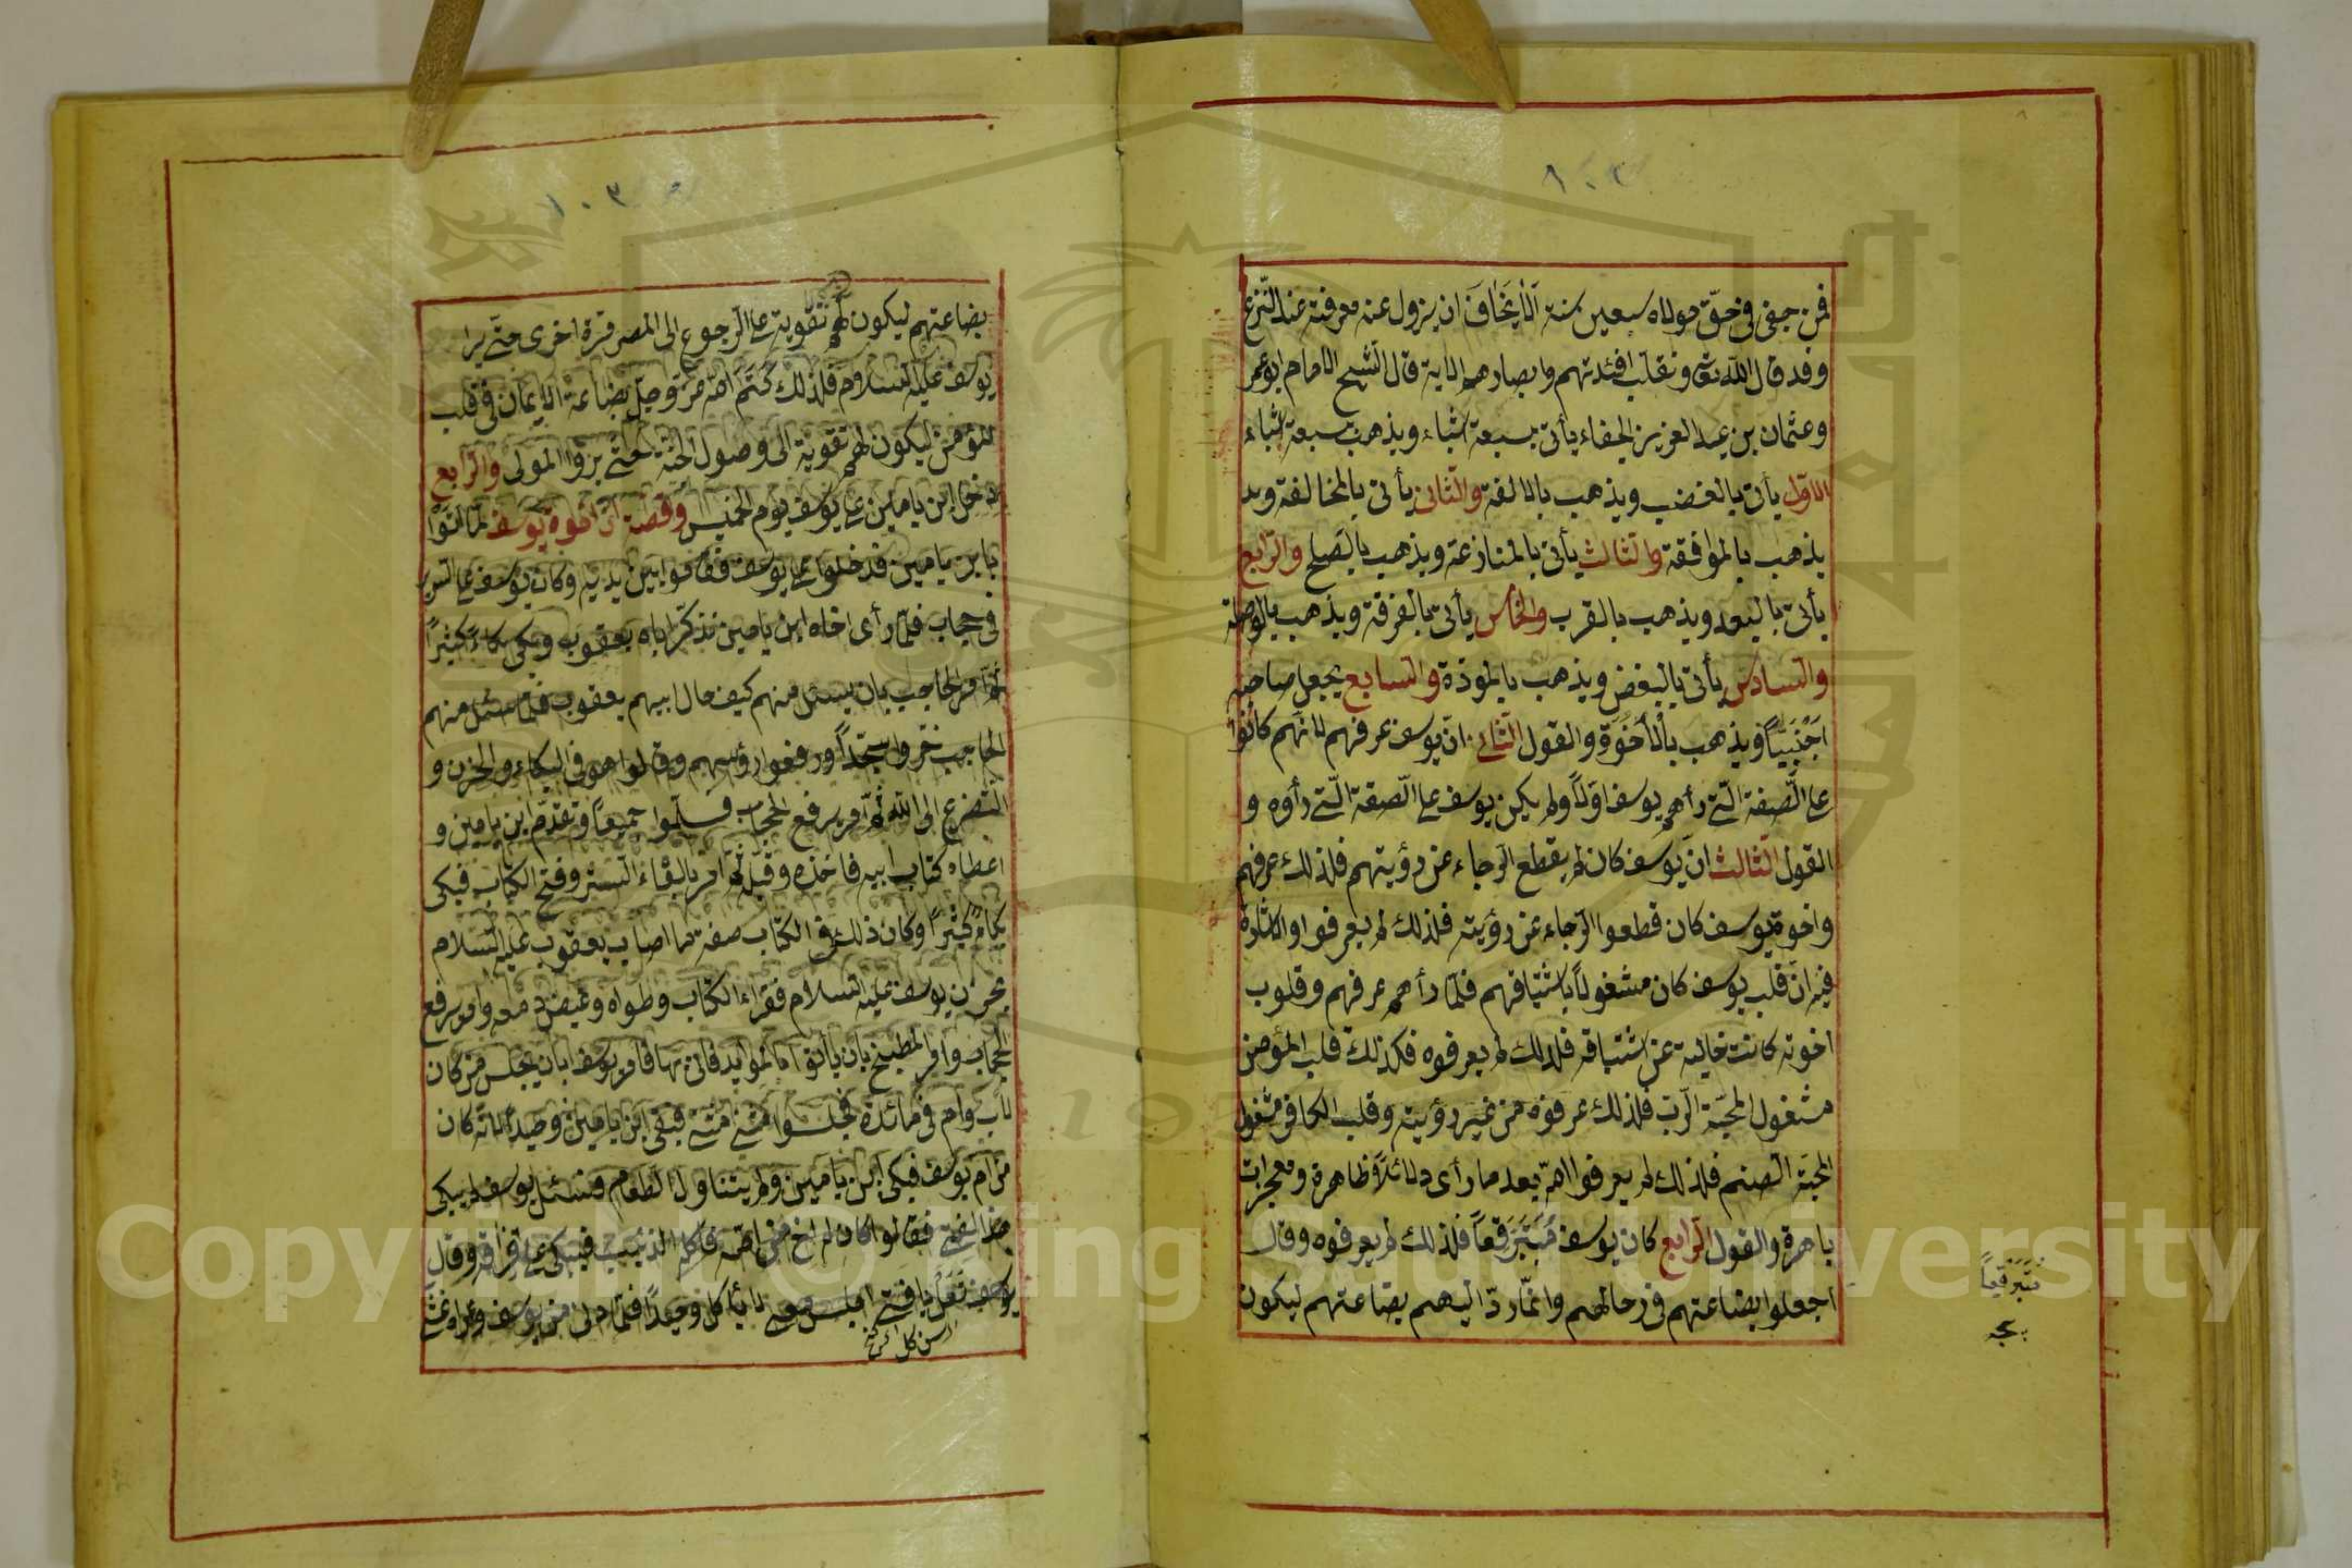 فمن جفى فى حقّ مولاه سبعين سنة ألا يخاف ان يزول عنه معرفة عند النزع
وقد قال الله تعا ونقلب افئدتهم وابصارهم الاية قال الشيخ الامام ابو عمر
وعثمان بن عبد العزيز الجفاء يأتى بسبعة اشياء ويذهب بسبعة اشياء
الاوّل يأتى بالغضب ويذهب بالالفة والثانى يأتى بالمخالفة ويذ
يذهب بالموافقة والثالث يأتى بالمنازعة ويذهب بالصلح والرابع
يأتى بالبعد ويذهب بالقرب والخامس يأتى بالفرقة ويذهب بالوصلة
والسادس يأتى بالبغض ويذهب بالمودة والسابع يجعل صاحبه
اجنبيّاً ويذهب بالأخوّة والقول الثانى انّ يوسف عرفهم لانّهم كانوا
عا الصّفة الّتى رأهم يوسف اوّلاً ولم يكن يوسف عا الصّفة الّتى رأوه و
القول الثالث انّ يوسف كان لم يقطع الرجاء عن رؤيتهم فلذلك عرفهم
واخوة يوسف كان قطعوا الرجاء عن رؤيته فلذلك لم يعرفوا والاشارة
فيه انّ قلب يوسف كان مشغولاً باشتياقهم فلمّا رأهم عرفهم وقلوب
اخوته كانت خالية عن اشتياقه فلذلك لم يعرفوه فكذلك قلب المؤمن
مشغول لمحبّة الرّبّ فلذلك عرفوه من غير رؤيته وقلب الكافر مشغول
لمحبّة الصنم فلذلك لم يعرفوا الله بعد ما رأى دلائلاً ظاهرة ومعجزات
باهرة والقول الرابع كان يوسف متبرقعاً فلذلك لم يعرفوه وقال
اجعلوا بضاعتهم فى رحالهم وانّما ردّ اليهم بضاعتهم ليكون
متبرقعاً
بضاعتهم ليكون لهم تقوية عا الرجوع الى المصر مرة اخرى حتّى يرا
يوسف عليه السلام فلذلك كتم الله عزّ وجلّ بضاعة الايمان فى قلب
المؤمن ليكون لهم تقوية الى وصول الجنّة حتّى يزوا المولى والرابع
دخل ابن يامين عا يوسف يوم الخميس وقصّة انّ اخوة يوسف لمّا اتوا
بابن يامين فدخلوا عا يوسف فقاموا بين يديه وكان يوسف عا السرير
فى حجاب فلمّا رأى اخاه ابن يامين تذكّر اباه يعقوب وبكى بكاءً كثيراً
ثم امر الحاجب بان يسئل منهم كيف حال ابيهم يعقوب فلمّا سئل منهم
الحاجب خرّوا سجّداً ورفعوا رؤسهم وقالوا هو فى البكاء والحزن و
التضرع الى الله ثم امر برفع الحجاب فسلّموا جميعاً وتقدّم ابن يامين و
اعطاه كتاب ابيه فاخذه وقبّله ثم امر بالقاء الستر وفتح الكتاب فبكى
بكاءً كثيراً وكان ذلك فى الكتاب صفة ما اصاب يعقوب عليه السلام
بحزن يوسف عليه السلام فقراء الكتاب وطواه وغيض دمعه وامر برفع
الحجاب وامر المطبخ بان يأتوا بالموايد فاتى بها فامر يوسف بان يجلس من كان
لاب وام فى مائدة فجلسوا مثنى مثنى فبقى ابن يامين وحيداً لانّه كان
من ام يوسف فبكى ابن يامين ولم يتناول الطعام فسئل يوسف لم يبكى
هذا الفتى فقالوا كان له اخ من امّه فاكله الذئب فيبكى عا فراقه وقال
يوسف تعال يا فتى اجلس معى لا تأكل وحيداً فلمّا دنى من يوسف
Copyright © King Saud University
1957